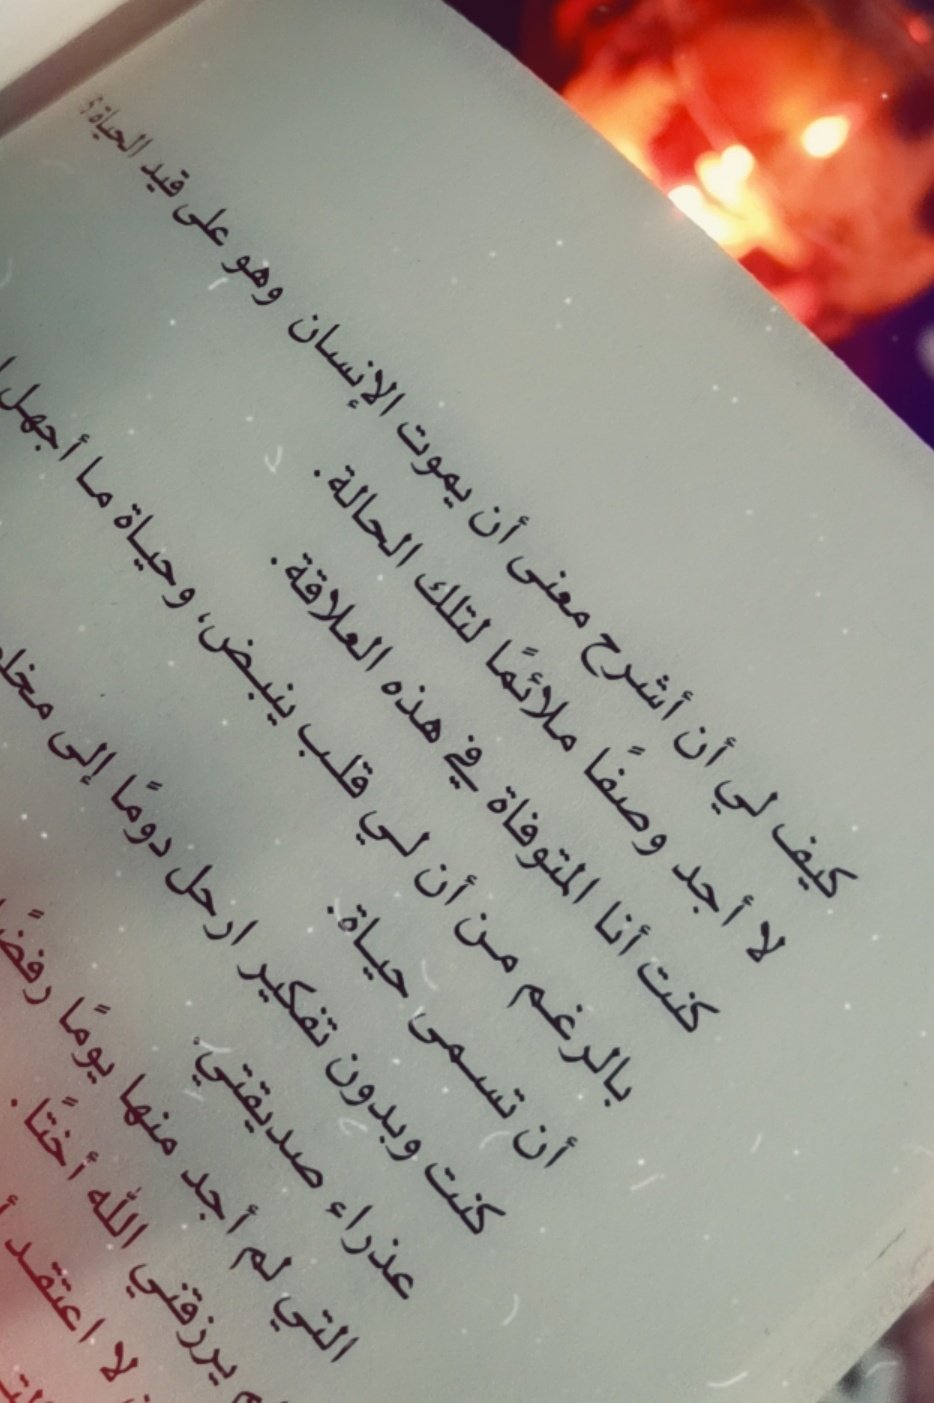 كيف لي أن أشرح معنى أن يموت الإنسان وهو على قيد الحياة؟
لا أجد وصفًا ملائمًا لتلك الحالة.
كنت أنا المتوفاة في هذه العلاقة.
بالرغم من أن لي قلب ينبض، وحياة ما أجهل
أن تسمى حياة.
كنت وبدون تفكير ارحل دومًا إلى
عذراء صديقتي
التي لم أجد منها يومًا رفضًا
يرزقني الله أختًا.
لا اعتقد